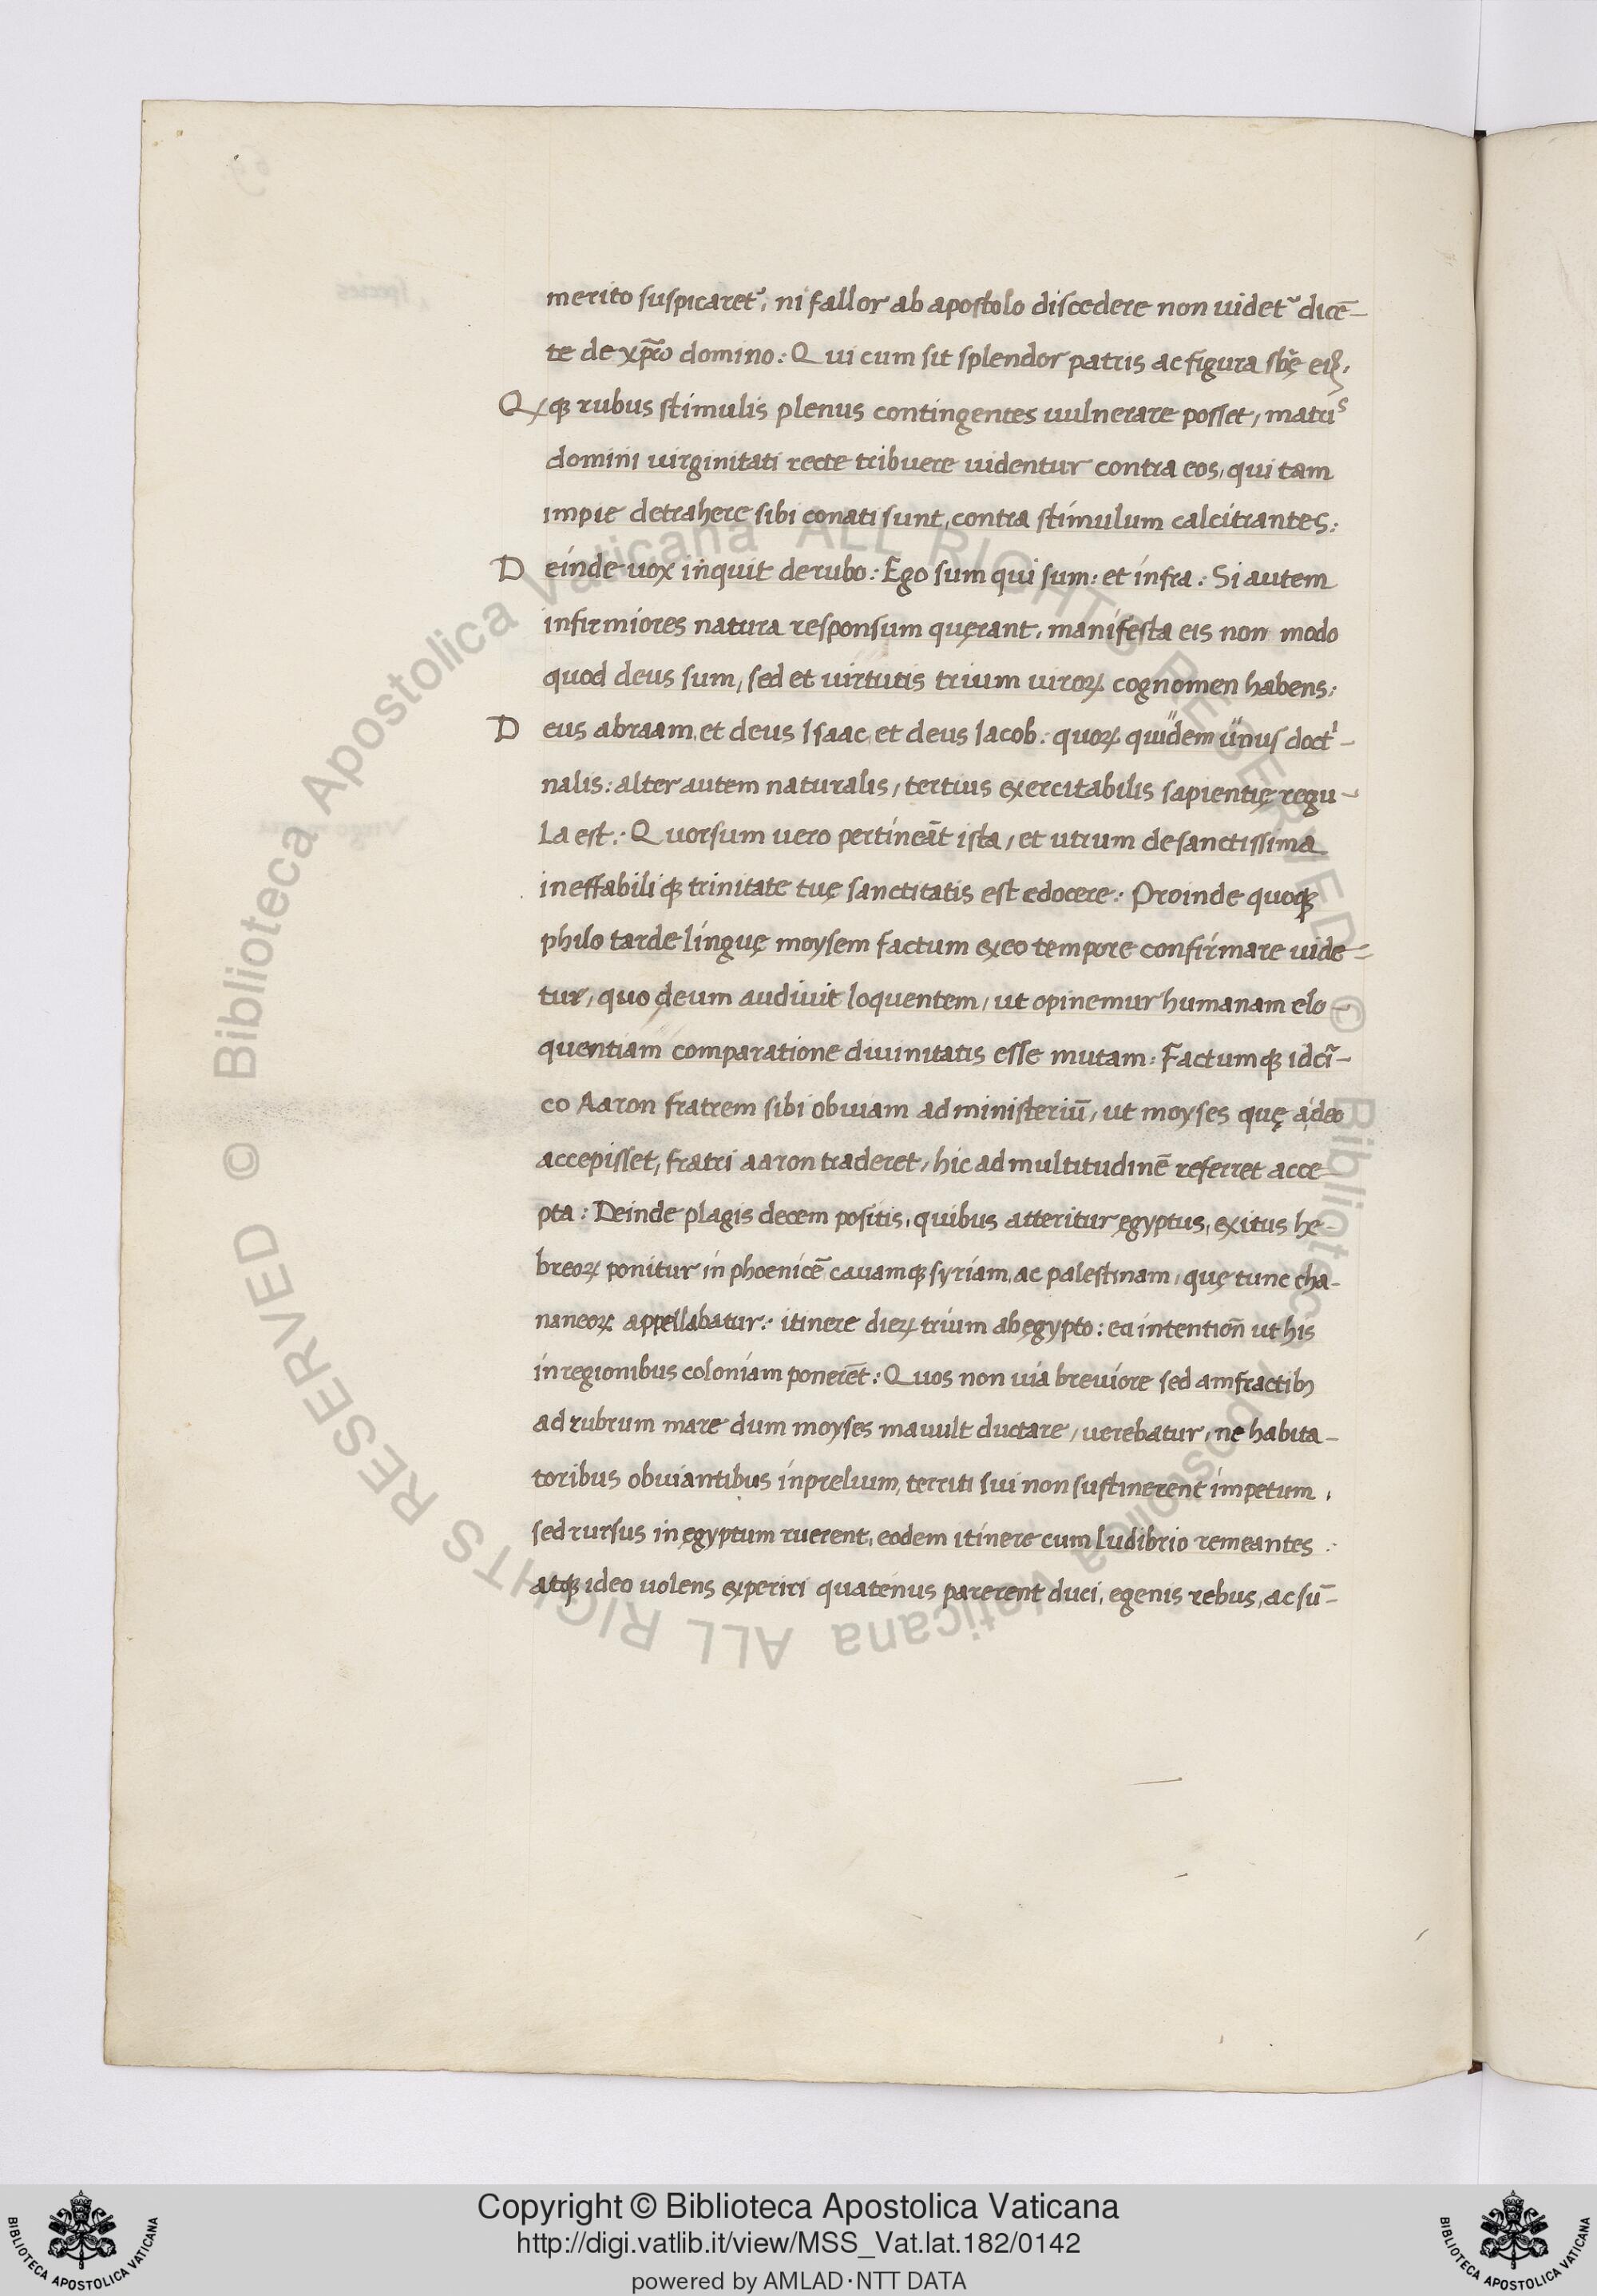 merito suspicaret᷑, ni fallor ab apostolo discedere non uidet᷑ dicē-
te de xp̄o domino: Qui cum sit splendor patris ac figura sbę̄ eiꝰ,
Qꝗ rubus stimulis plenus contingentes uulnerare posset, matris
domini uirginitati recte tribuere uidentur contra eos, qui tam
impie detrahere sibi conati sunt, contra stimulum calcitrantes:
Deinde uox inquit de rubo: Ego sum qui sum: et infra: Si autem
infirmiores natura responsum quęrant, manifesta eis non modo
quod deus sum, sed et uirtutis trium uiroꝝ cognomen habens:
Deus abraam, et deus Isaac, et deus Iacob: quoꝝ quidem unus doctⁱ-
nalis: alter autem naturalis, tertius exercitabilis sapientię regu-
la est: Quorsum uero pertineāt ista, et utrum de sanctissima
ineffabiliqꝫ trinitate tuę sanctitatis est edocere: Proinde quoqꝫ
philo tarde linguę moysem factum ex eo tempore confirmare uide-
tur, quo deum audiuit loquentem, ut opinemur humanam elo-
quentiam comparatione diuinitatis esse mutam: Factumqꝫ idcī-
co Aaron fratrem sibi obuiam ad ministeriū, ut moyses quę a deo
accepisset, fratri aaron traderet, hic ad multitudinē referret acce
pta: Deinde plagis decem positis, quibus atteritur ęgyptus, exitus he-
breoꝝ ponitur in phoenicē cauamqꝫ syriam, ac palestinam, quę tunc cha-
naneoꝝ appellabatur: itinere dieꝝ trium ab ęgypto: ea intentioñ ut his
in regionibus coloniam ponerēt: Quos non uia breuiore sed amfractibꝫ
ad rubrum mare dum moyses mauult ductare, uerebatur, ne habita-
toribus obuiantibus in prelium, territi sui non sustinerent impetum,
sed rursus in ęgyptum ruerent, eodem itinere cum ludibrio remeantes:
atqꝫ ideo uolens experiri quatenus parerent duci, egenis rebus, ac sū-
© Biblioteca Apostolica Vaticana ALL RIGHTS RESERVED © Biblioteca Apostolica Vaticana ALL RIGHTS RESERVED
Copyright © Biblioteca Apostolica Vaticana
http://digi.vatlib.it/view/MSS_Vat.lat.182/0142
powered by AMLAD·NTT DATA
BIBLIOTECA APOSTOLICA VATICANA
BIBLIOTECA APOSTOLICA VATICANA